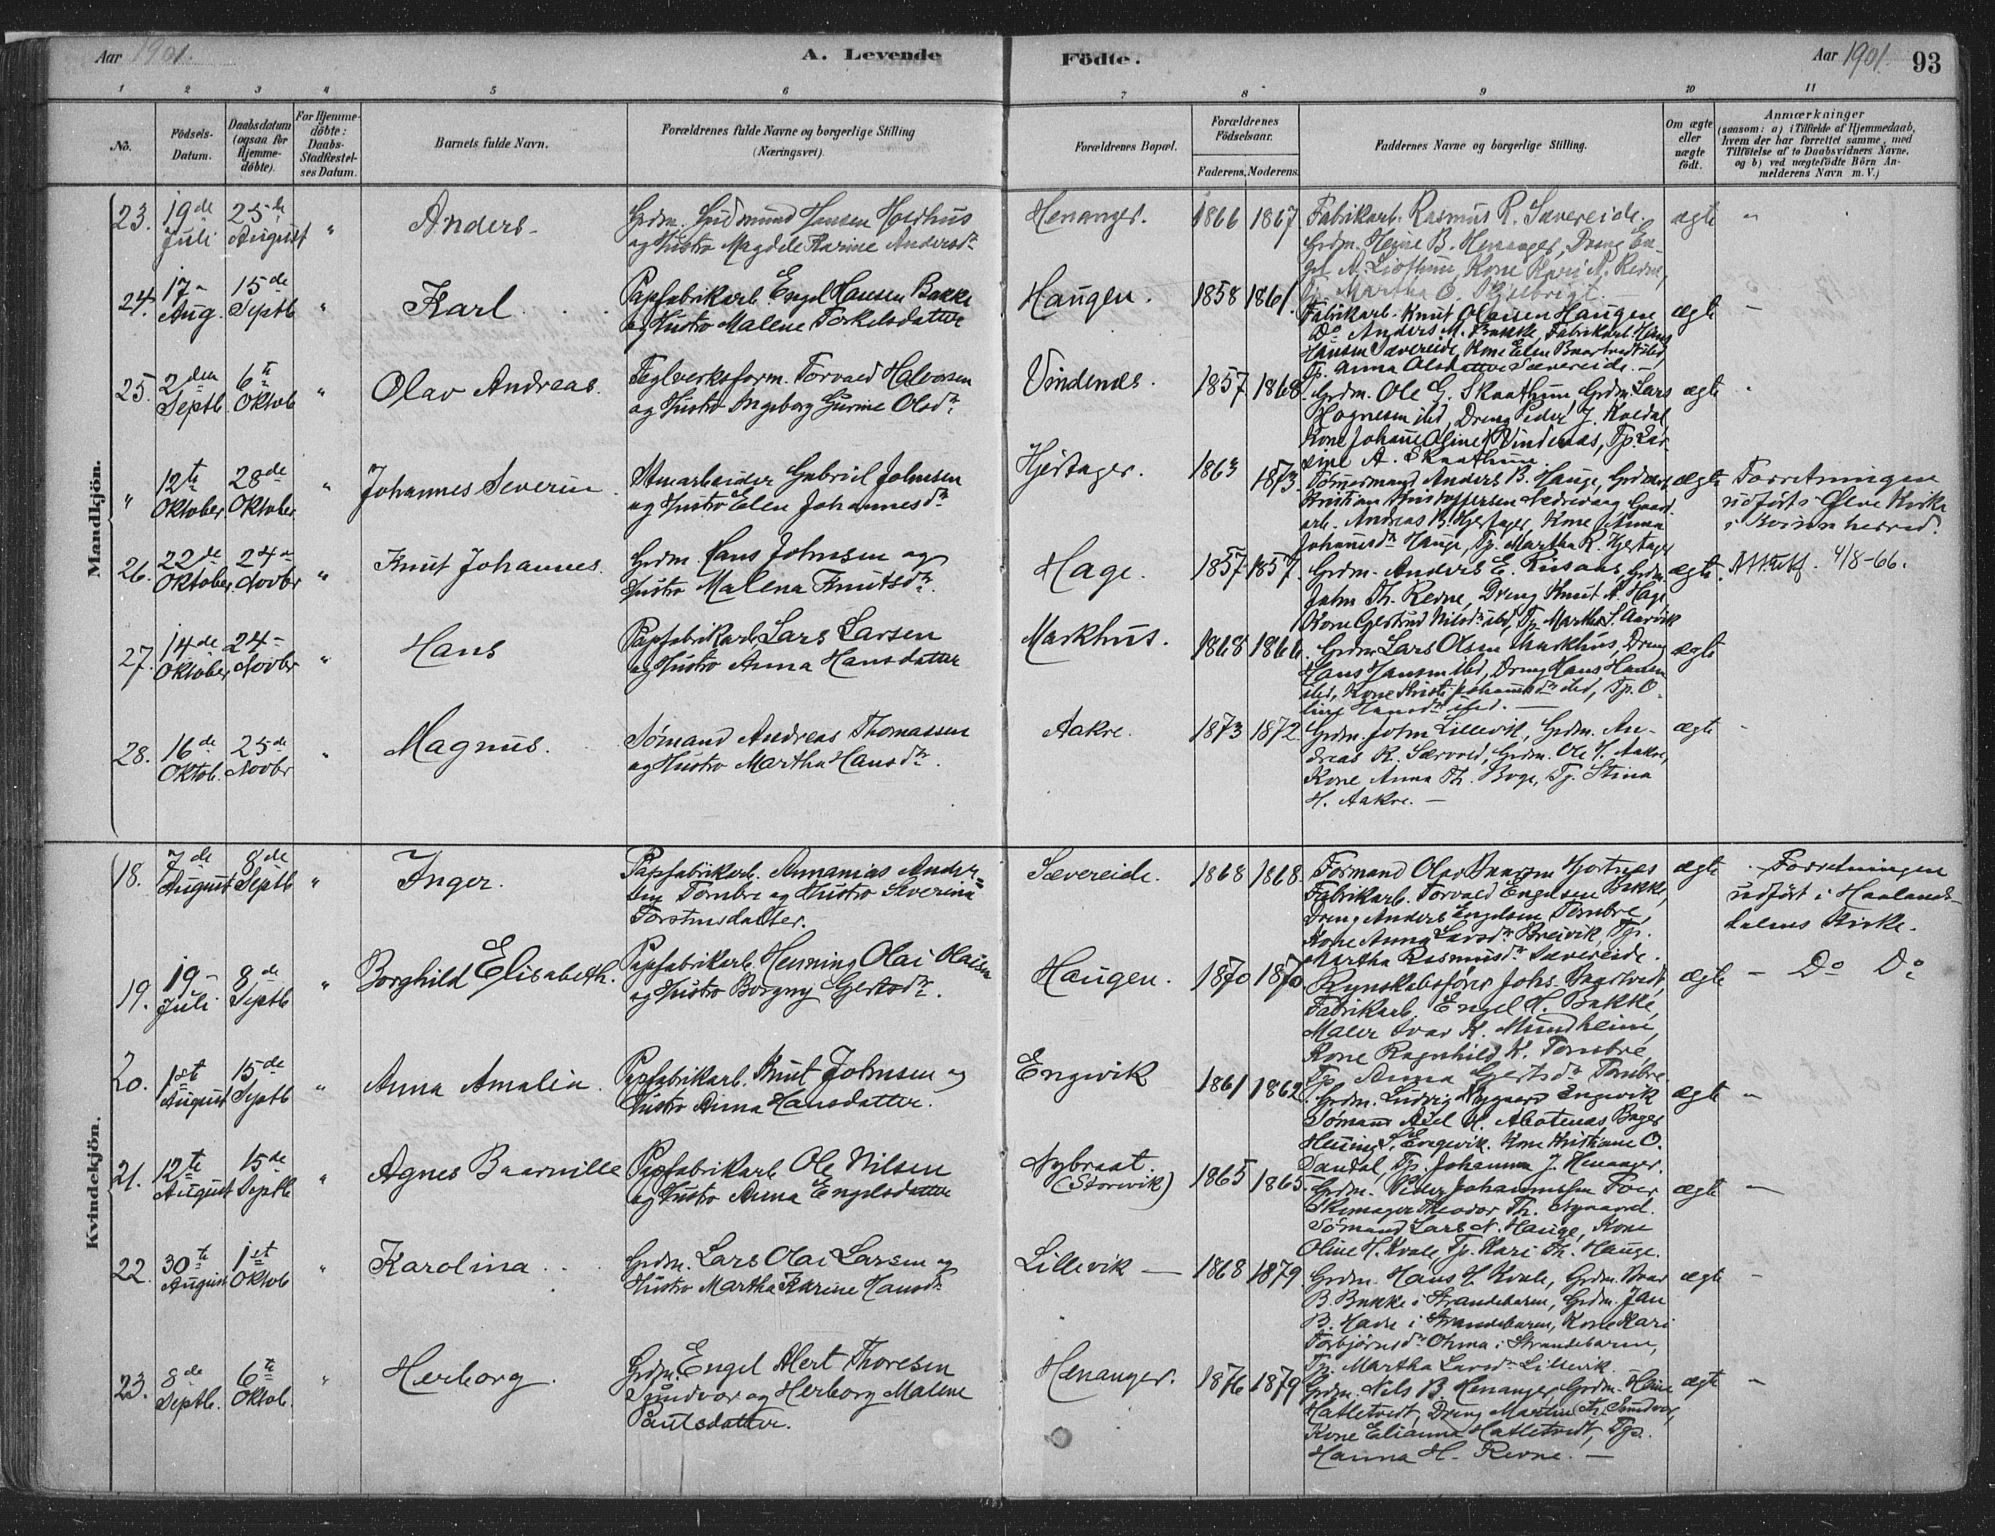 Aar 1901. A. Levende Födte. Aar 1901. 93
1 2 3 4 5 6 7 8 9 10 11
No.
Födsels-Datum.
Daabsdatum (ogsaa for Hjemme-döbte).
For Hjemme-döbte: Daabs-Stadfæstel-ses Datum.
Barnets fulde Navn.
Forældrenes fulde Navne og borgerlige Stilling (Næringsvei).
Forældrenes Bopæl.
Forældrenes Födselsaar.
Faderens. Moderens.
Faddernes Navne og borgerlige Stilling.
Om ægte eller uægte födt.
Anmærkninger
(saasom: a) i Tilfælde af Hjemmedaab, hvem der har forrettet samme, med Tilföielse af to Daabsvidners Navne, og b) ved uægtefödte Börn An-melderens Navn m. V.)
Mandkjön.
23. 19de Juli 25de August " Anders
Grdm. Gudmund Hansen Holdhus
og Hustro Magdele Karine Andersdr
Henanger. 1866 1867
Fabrikarb. Rasmus R. Sævereide.
Grdm. Heine B. Henanger, Dreng En-
gel A. Liothun, Kone Kari N. Revne,
Tp. Martha O.
ægte "
24. 17- Aug. 15de Septb " Karl
Papfabrikarb. Engel Hansen Bakke
og Hustro Malene Torkelsdatter
Haugen. 1858 1861.
Fabrikarb. Knut Olaisen Haugen
Do Anders M. Bakke, Fabrikarb. Hans
Hansen Sævereide, Kone Elen
Tp. Anna Olsdatter Sævereide. —
ægte —
25. 2den Septb. 6te Oktob " Olav Andreas.
Teglverksform. Torvald Halvorsen
og Hustro Ingeborg Gurine Olsdr.
Vindenæs. 1857 1868
Grdm. Ole G. Skaathun Grdm. Lars
Hognesen ibd, Dreng Peder J. Kvedal,
Kone Johanne Oline Vindenæs, Tp. Lar-
sine A. Skaathun.
ægte "
" 12te Oktober 28de Oktober " Johannes Severin
Stuearbeider Gabriel Johnsen
og Hustro Elen Johannesdr
Hjertager. 1863 1873.
Tømermand Anders B. Hauge, Grdm.
Kristian Kristoffersen
arb. Andreas B. Hjertager, Kone Anna
Johannesdr Hauge, Tp. Martha R. Hjertager
ægte
Forretningen
udført i Ølve Kirke
i Kvinnherred.
26. 22de Oktober 24- Novbr " Knut Johannes.
Grdm. Hans Johnsen og
Hustro Malena Knutsdr.
Hage. 1857 1857
Grdm. Anders E. Grdm.
John Th. Revne, Dreng Knut A. Hage
Kone Gjertrud Nilsdr ibd, Tp. Martha S. Aarvik
ægte. Attest 4/8-66.
27. 14de Oktober 24- Novbr " Hans
Papfabrikarb. Lars Larsen
og Hustro Anna Hansdatter
Markhus. 1868 1866
Grdm. Lars Olsen Markhus, Dreng
Hans Hansen ibd, Dreng Hans Hansen
ibd, Kone Kristi Johannesdr ibd, Tp. O-
line Hansdr ibd. —
ægte
28. 16de Oktob. 25de Novbr " Magnus.
Sømand Andreas Thomassen
og Hustro Martha Hansdr.
Aakre. 1873 1872
Grdm. John Lillevik, Grdm. An-
dreas R. Særvold, Grdm. Ole H. Aakre,
Kone Anna Th. Boge, Tp. Stina
H. Aakre. —
ægte —
Kvindekjön.
18. 7de August 8de Septb " Inger.
Papfabrikarb. Annanias Ander-
sen Tombre og Hustro Severina
Torstensdatter.
Sævereide. 1868 1868.
Formand Olav Hjortnæs
Fabrikarb. Torvald Engelsen Bakke,
Dreng Anders Engelsen Tombre,
Kone Anna Larsdr Breivik, Tp.
Martha Rasmusdr Sævereide.
ægte
Forretningen
udført i Haalands-
dalens Kirke.
19. 19- Juli 8de Septb " Borghild Elisabeth.
Papfabrikarb. Henning Olai Olaisen
og Hustro Borgny Gjertsdr.
Haugen. 1870 1870
Regnskabsfører Johs.
Fabrikarb. Engel H. Bakke,
Maler Ivar K. Mundheim,
Kone Ragnhild K. Tombre,
Tp. Anna Gjertsdr Tombre.
ægte — Do Do
20. 1st August 15de Septb " Anna Amalia.
Papfabrikarb. Knut Johnsen og
Hustro Anna Hansdatter.
Engevik 1861 1862
Grdm. Ludvig Nygaard Engevik
Sømand Axel Bager
Henning S. Engevik. Kone Kristiane O.
Sandal, Tp. Johanna J. Henanger.
ægte "
21. 12te August 15de Septb " Agnes Baarnille
Papfabrikarb. Ole Nilsen
og Hustro Anna Engelsdatter
Nybraat.
(Storevik) 1865 1865
Grdm. Peder Johannessen
Skomager Theodor Th. Nygaard.
Sømand Lars N. Hauge, Kone
Oline H. Kvale, Tp. Kari Th. Hauge.
ægte —
22. 30te August 1st Oktob " Karolina
Grdm. Lars Olai Larsen og
Hustro Martha Karine Hansdr
Lillevik — 1868 1879
Grdm. Hans H. Kvale, Grdm. Ivar
B. Bakke i Strandebarm, Grdm. Jan
B. Havn i Strandebarm, Kone Kari
Torbjørnsdr Omma i Strandebarm,
Tp. Martha Larsdr Lillevik.
ægte —
23. 8de Septb. 6te Oktob. " Herborg.
Grdm. Engel Alert Thoresen
Sundvor og Herborg Malene
Paulsdatter.
Henanger. 1876 1879
Grdm. Nils B. Henanger, Grdm. Heine
Hatletvedt, Dreng Martin Th. Sundvor,
Kone Elianna Hatletvedt, Tp.
Hanna H. Revne. —
ægte —